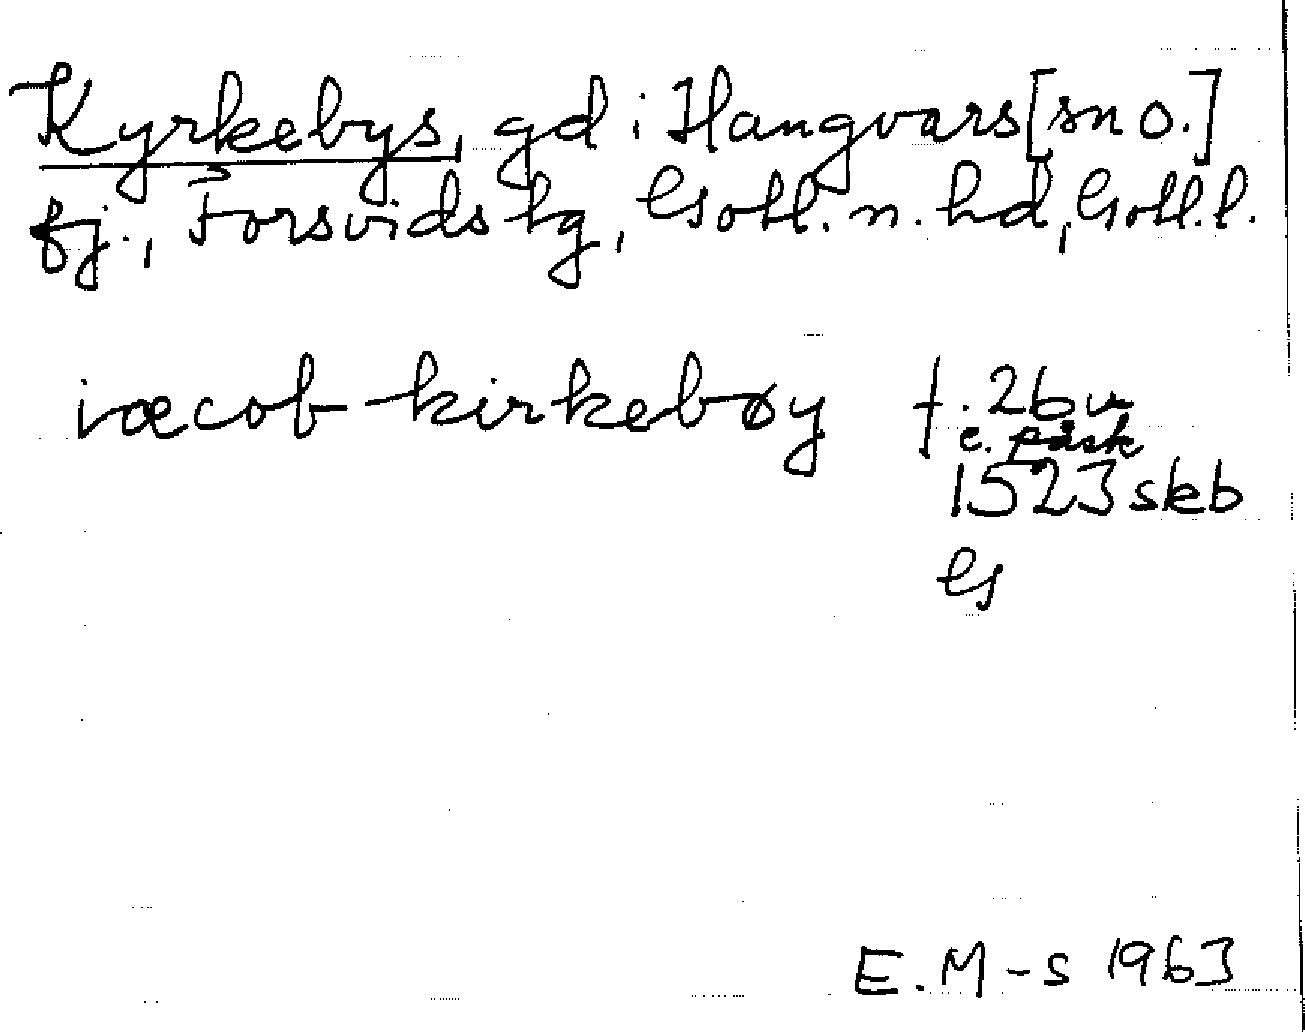 Kyrkebys, gd i Hangvars [sn o.]
fj., Forsvids tg, Gotl. n. hd, Gotl. l.
iacob kirkebøy t. 26 u
e. påsk
1523 skb
G
E. M-s 1963